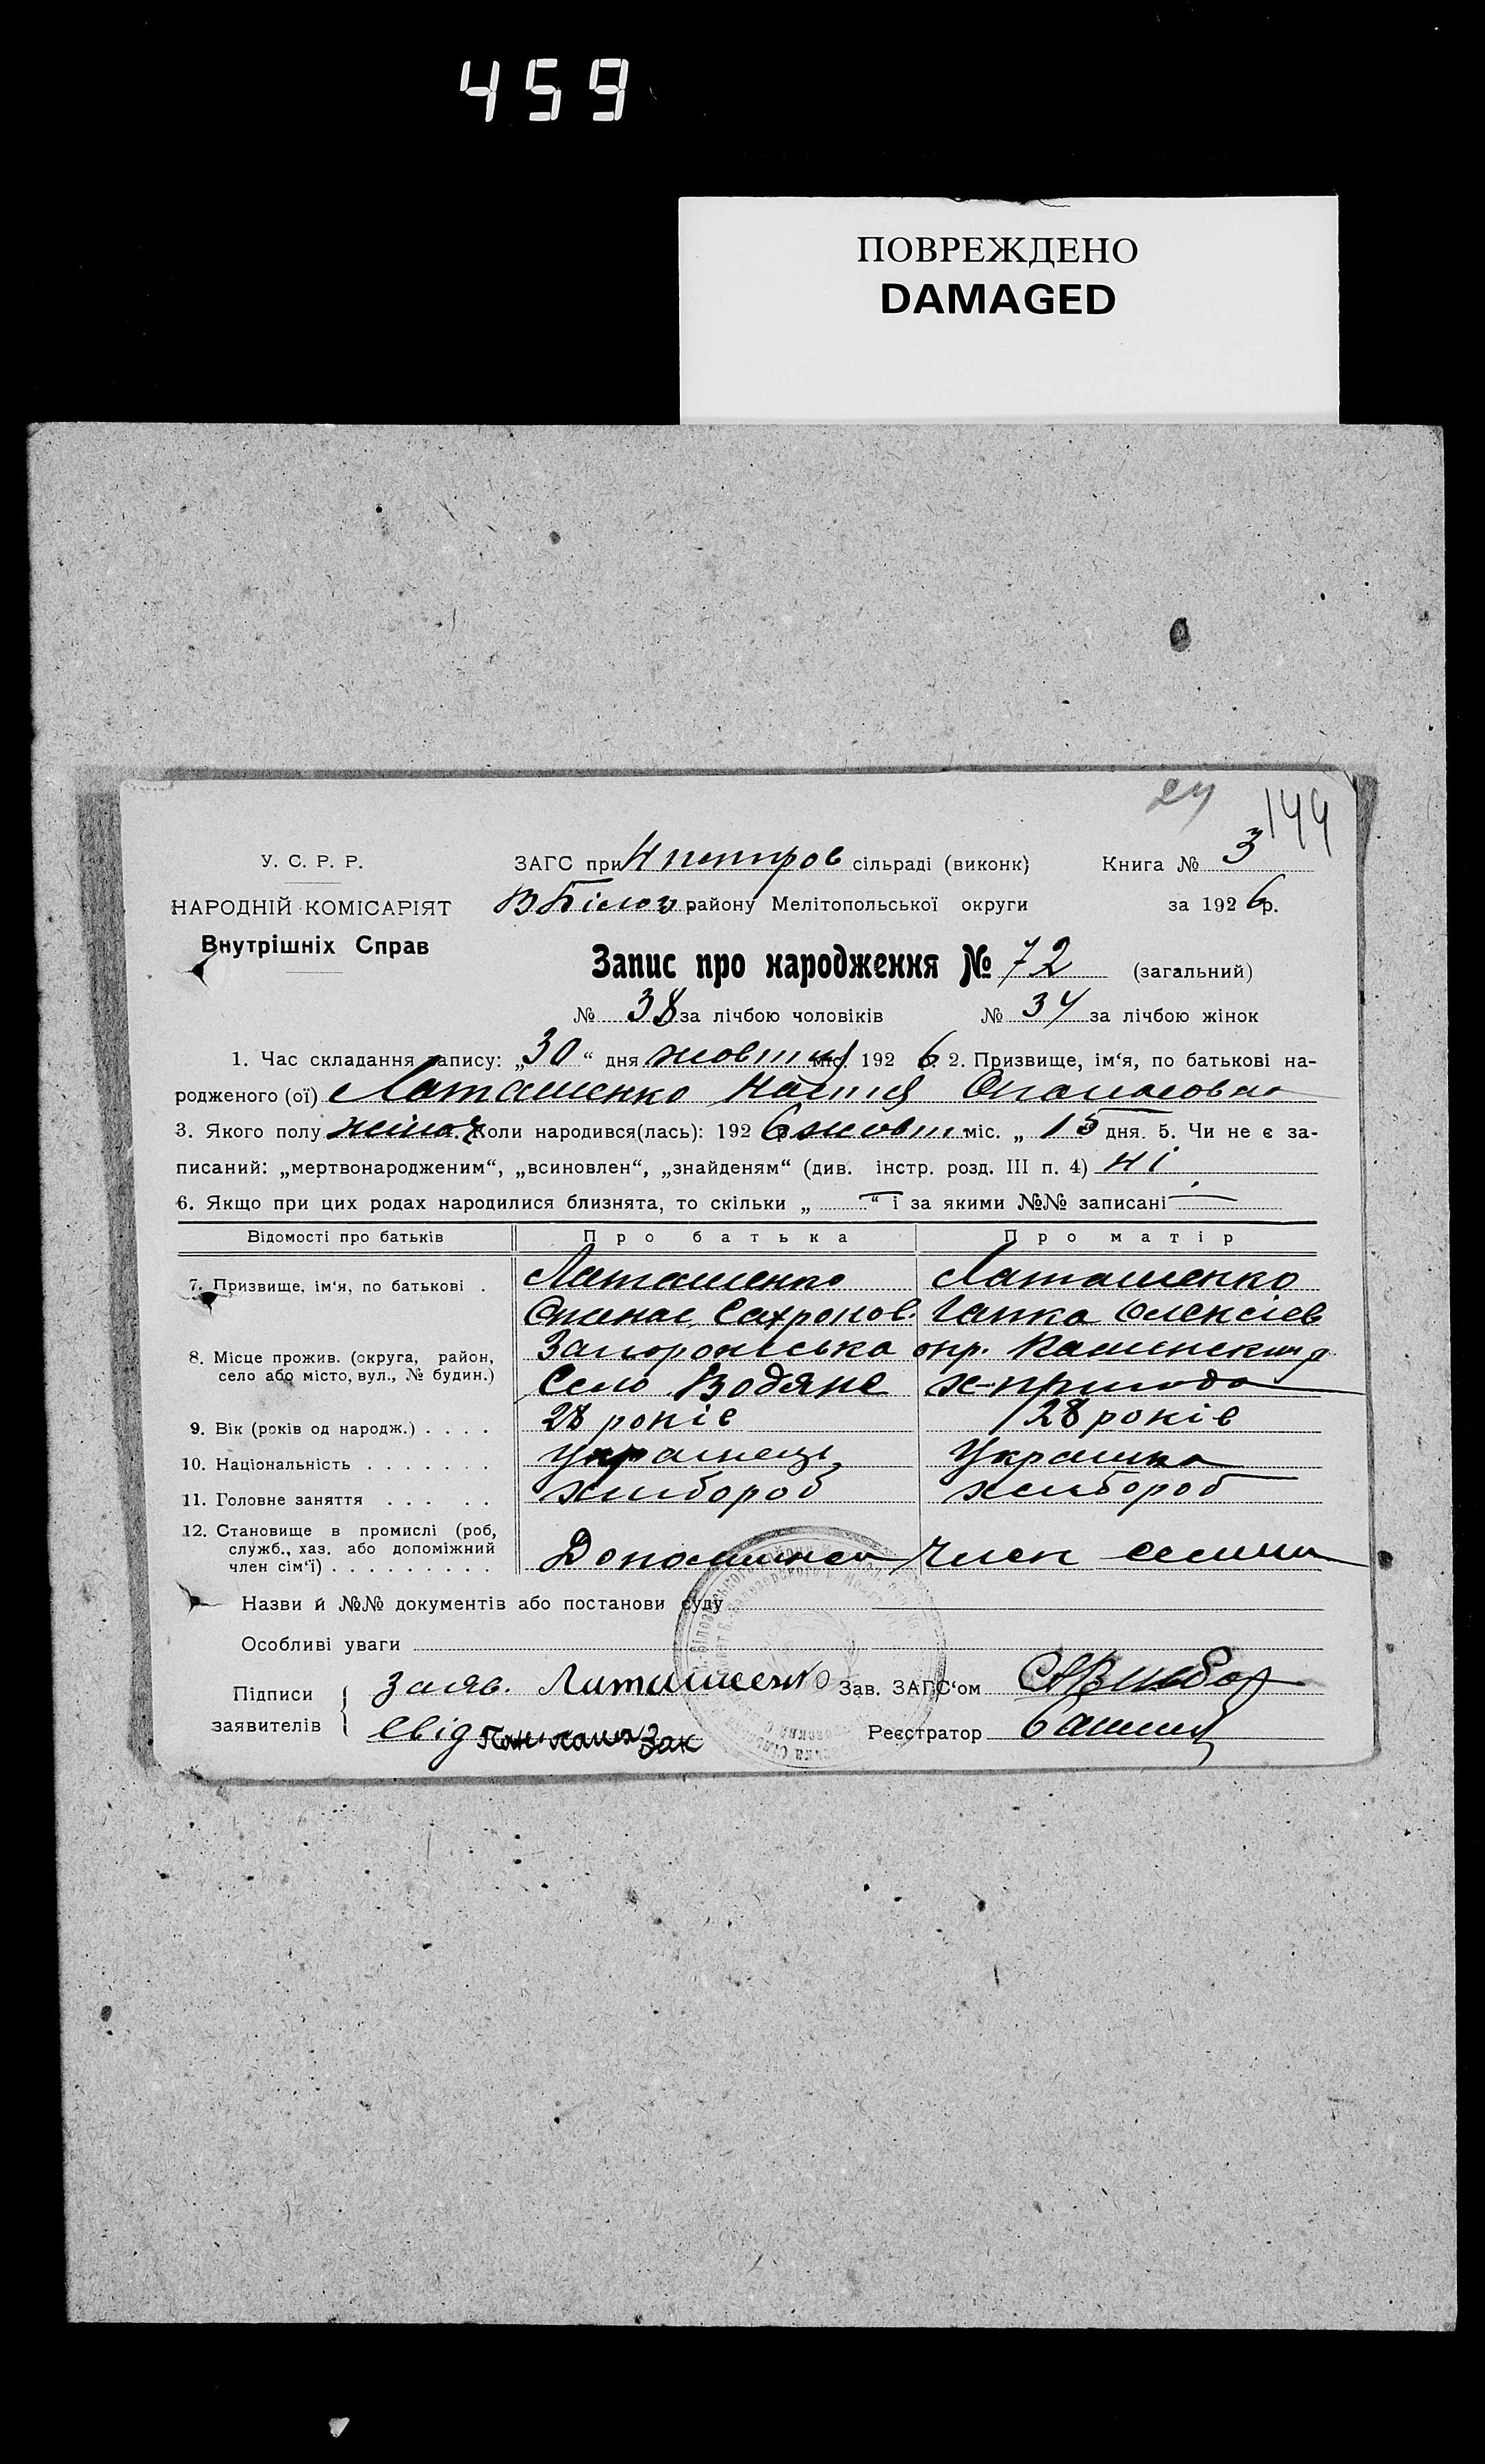 459
ПОВРЕЖДЕНО
DAMAGED
24
144
У. С. Р. Р.
ЗАГС при Нпетров сільраді (виконк)
Книга № 3
НАРОДНІЙ КОМІСАРІЯТ
ВБілоз району Мелітопольської округи
за 1926 р.
Внутрішніх Справ
Запис про народження № 72 (загальний)
№ 38 за лічбою чоловіків № 34 за лічбою жінок
1. Час складання запису: „30“ дня жовтня міс. 1926. 2. Призвище, ім‘я, по батькові на-
родженого (ої) Латашенко Настя Опанасовна
3. Якого полу жіноч. Коли народився(лась): 1926 жовт міс. „ 15 дня. 5. Чи не є за-
писаний: „мертвонародженим“, „всиновлен“, „знайденям“ (див. інстр. розд. III п. 4) Ні
6. Якщо при цих родах народилися близнята, то скільки „ — “ і за якими №№ записані —
Відомості про батьків Про батька Про матір
7. Призвище, ім‘я, по батькові . Латашенко Латашенко
Опанас Сахронов. Гапка Олексієв
8. Місце прожив. (округа, район, Запорожська окр. Каменський р.
село або місто, вул., № будин.) Село Водяне
9. Вік (років од народж.) . . . . 28 років 28 років
10. Національність . . . . . . . Українець Українка
11. Головне заняття . . . . . Хлібороб Хлібороб
12. Становище в промислі (роб,
служб., хаз. або допоміжний
член сім‘ї) . . . . . . . . . Член
Назви й №№ документів або постанови суду
Особливі уваги
Підписи Заяв. Латашенко Зав. ЗАГС‘ом
заявителів Свід Реєстратор